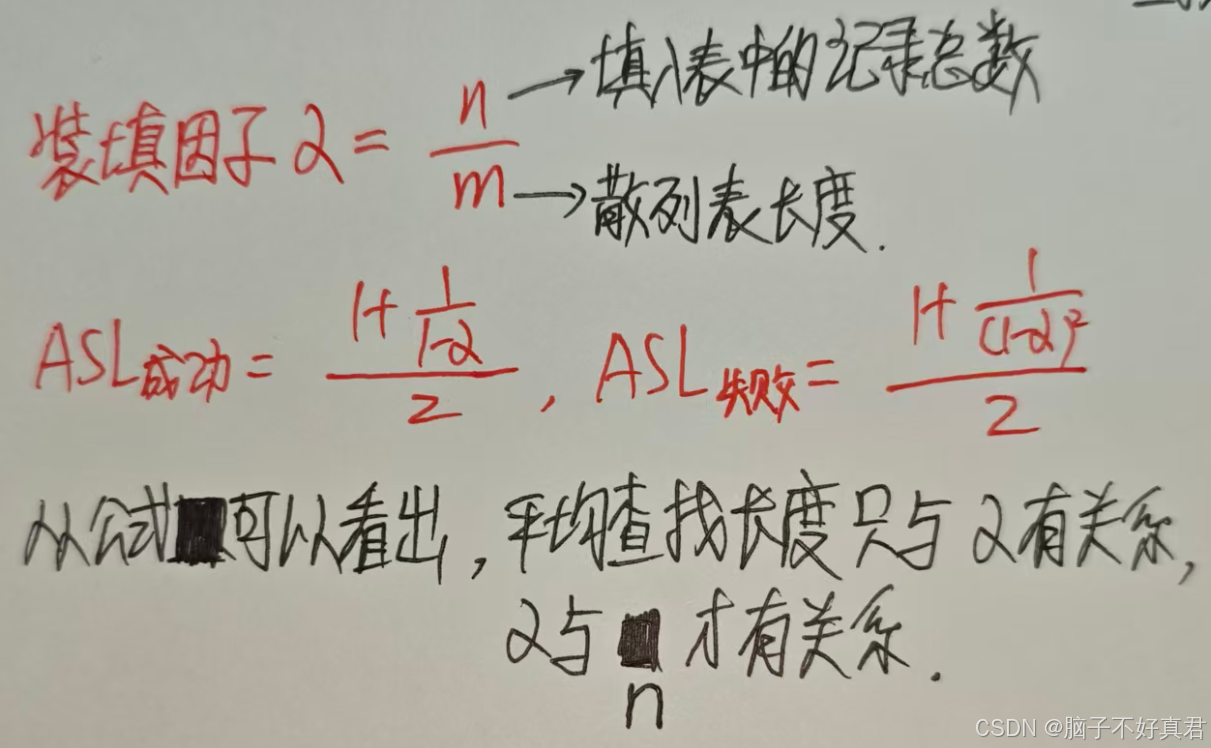 装填因子 α = n/m
n → 填入表中的记录总数
m → 散列表长度.
ASL成功 = (1+1/(1-α))/2 , ASL失败 = (1+1/(1-α)²)/2
从公式可以看出，平均查找长度只与 α 有关系，
α与 n 才有关系.
CSDN @脑子不好真君